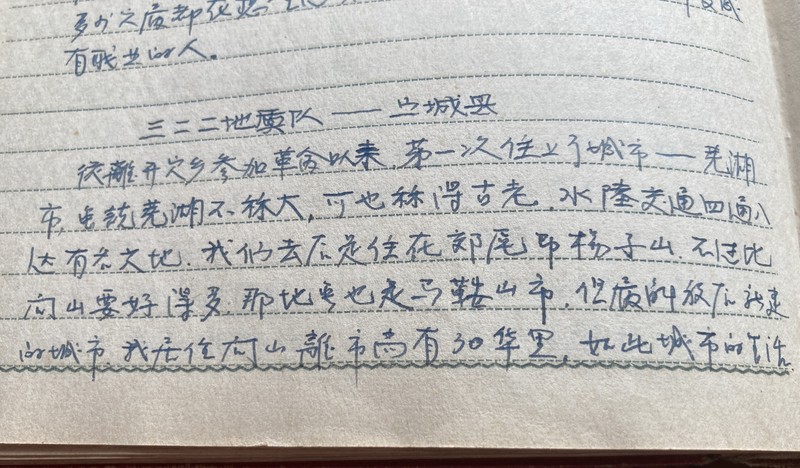 多少
有职业的人。
三二二地质队——宣城县
从離开家乡参加革命以来 第一次住上了城市——芜湖
市,虽说芜湖不称大,可也称得古老,水陸交通四通八
达有名之地.我们去后是住在郊尾即杨子山.不过比
向山要好得多.那地虽也是马鞍山市,但 解放后新建
的城市.我居住向山離市尚有30华里,如此城市的生活